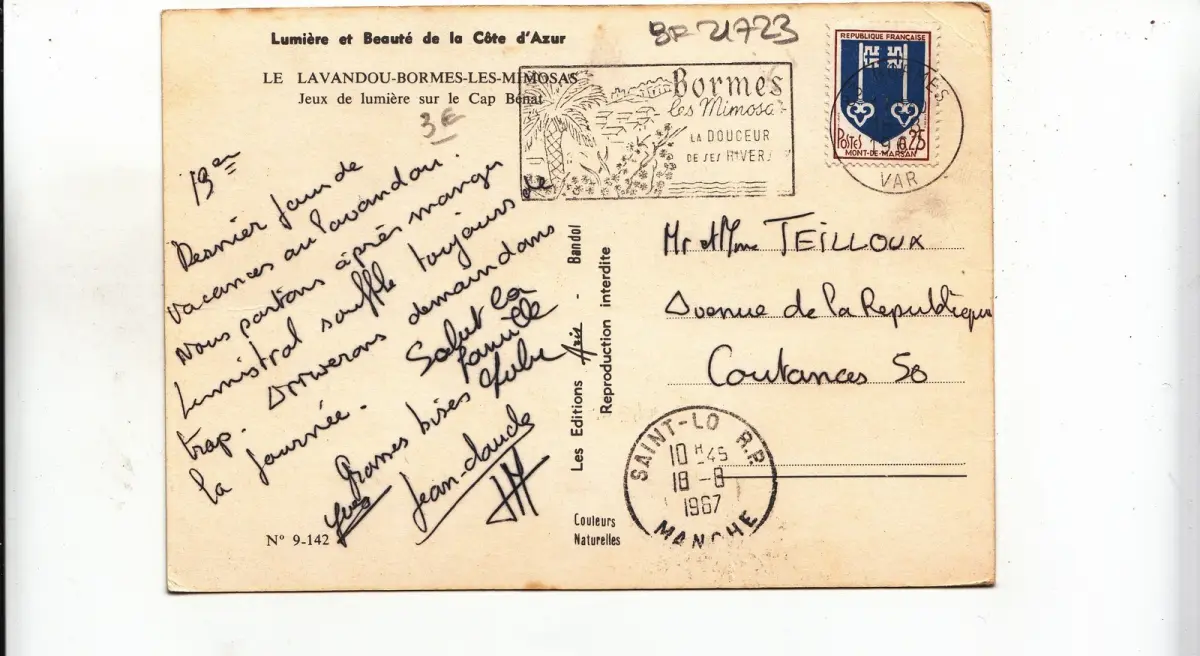 Lumière et Beauté de la Côte d'Azur
BF 21723
LE LAVANDOU-BORMES-LES-MIMOSAS
Jeux de lumière sur le Cap Bénat
3E
Bormes
les Mimosas
LA DOUCEUR
DE SES HIVERS
REPUBLIQUE FRANÇAISE
POSTES 0,25
MONT-DE-MARSAN
VAR
Dernier jour de
vacances au lavandou.
Nous partons après manger
le mistral souffle toujours
trop. Arriverons demain dans
la journée.
Salut la
famille
Grosses bises
Yves
Jean-claude
Mr et Mme TEILLOUX
Avenue de la Republique
Coutances 50
SAINT-LO R.P.
10 H 45
18 - 8
1967
MANCHE
Les Editions Aris - Bandol
Reproduction interdite
Couleurs
Naturelles
N° 9-142